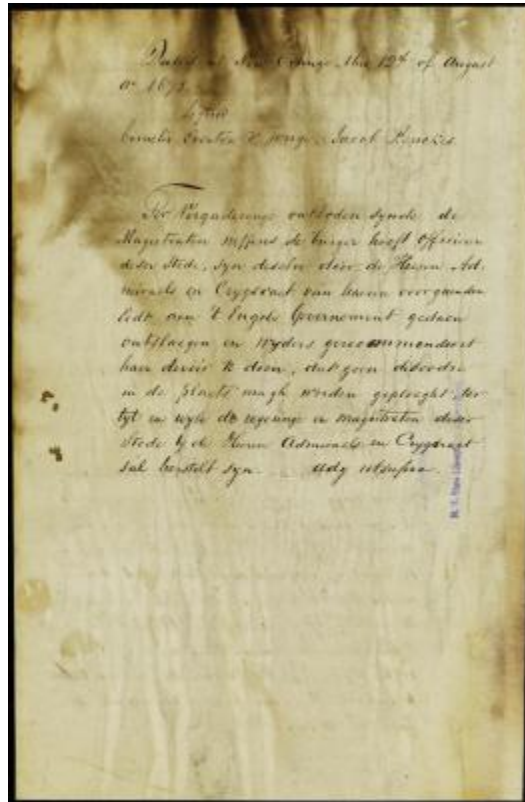 Dated at New Orange this 12th of August
Ao 1673.
Signed
Cornelis Evertse de Jonge, Jacob Benckes.
Ter Vergaderinge ontboden synde de
Magistraten miffens de burger hooft officieren
deser stede, syn deselve door de Heeren Ad-
miraels en Crygsraet van haeren voorgaenden
Eedt aen 't Engels Governement gedaen
ontslaegen en wyders gerecommandeert
haer devoir te doen, dat geen disordre
in de plaets magh worden gepleeght, ter
tyt en wyle de regeringe en magistraten deser
stede by de Heeren Admiraels en Crygsraet
sal herstelt syn. Ady utsupra.